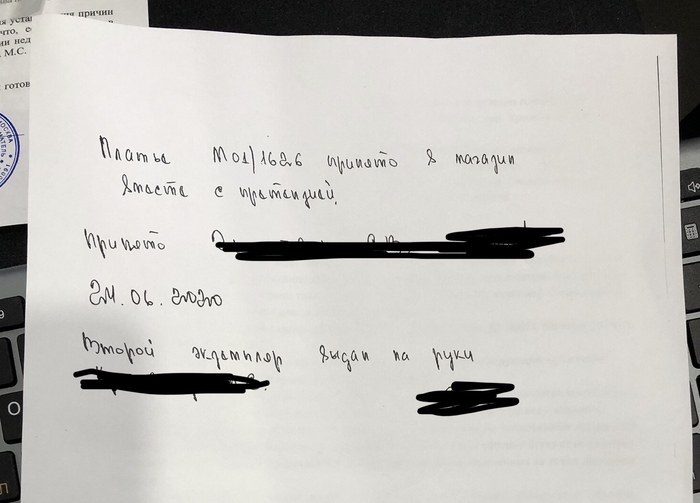 я уста ия причин
что, е
ии нед
М.С.
готов
МОСКВА
Платье М01/1626 принято в магазин
вместе с претензией.
Принято
24.06.2020
Второй экземпляр выдан на руки